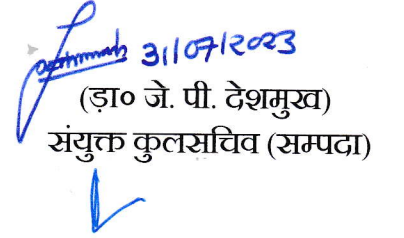 31/07/2023
(ड़ा० जे. पी. देशमुख)
संयुक्त कुलसचिव (सम्पदा)